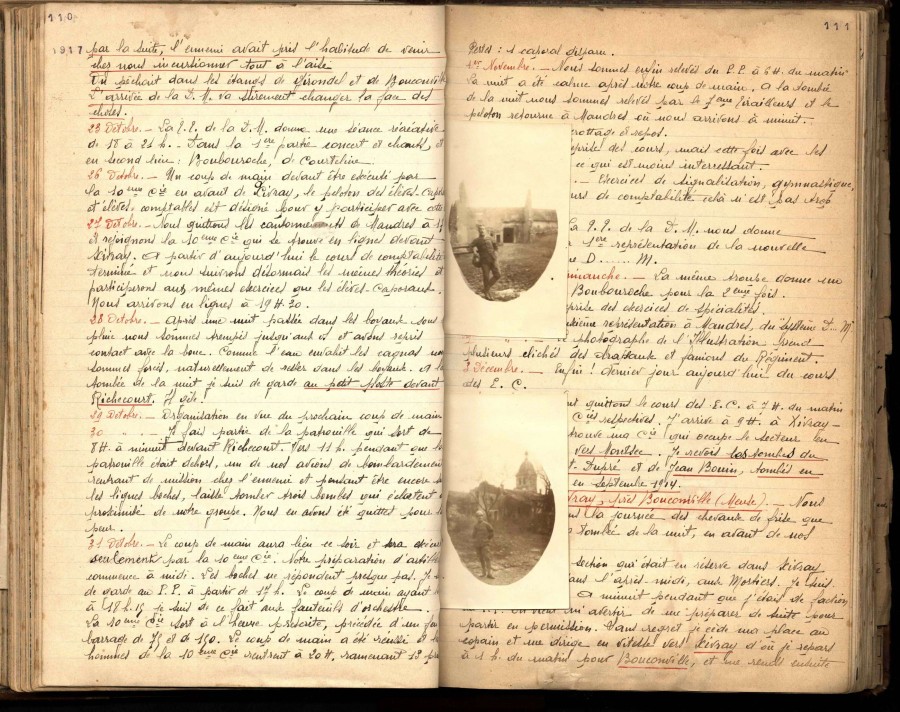 110
1917 par la suite, l'ennemi avait pris l'habitude de venir
chez nous incursionner tout à l'aise
On pêchait dans les étangs de Girondel et de Bouconville
L'arrivée de la D.M. va sûrement changer la face des
choses.
23 Octobre. _ La de la D.M. donne une séance récréative
de 18 à 21 h. _ Dans la 1ère partie concert et chants, et
en second lieu: Boubouroche, de Courteline.
26 Octobre. _ Un coup de main devant être exécuté par
la 10ème Cie en avant de Xivray, le peloton des élèves-capor
et élèves-comptables est désigné pour y participer avec cette
27 Octobre. _ Nous quittons les cantonnements de Mandres à
et rejoignons la 10ème Cie qui se trouve en lignes devant
Xivray. A partir d'aujourd'hui le cours de comptabilité
terminé et nous suivrons désormais les mêmes théories et
participerons aux mêmes exercices que les élèves-caporaux.
Nous arrivons en lignes à 19 H. 30.
28 Octobre. _ Après une nuit passée dans les boyaux sous
pluie nous sommes trempés jusqu'aux os et avons repris
contact avec la boue. Comme l'eau envahit les cagnas nous
sommes forcés, naturellement de rester dans les boyaux. A la
tombée de la nuit je suis de garde au petit poste devant
Richecourt. Il gèle!
29 Octobre. _ Organisation en vue du prochain coup de main
30 ........ _ Je fais partie de la patrouille qui sort de
8H à minuit devant Richecourt. Vers 11 h. pendant que la
patrouille était dehors, un de nos avions de bombardement
rentrant de mission chez l'ennemi et pensant être encore sur
les lignes boches, laisse tomber trois bombes qui éclatent à
proximité de notre groupe. Nous en avons été quittes pour la
peur.
31 Octobre. _ Le coup de main aura lieu ce soir et sera exécuté
seulement par la 10ème Cie. Notre préparation d'artillerie
commence à midi. Les boches ne répondent presque pas. Je suis
de garde au P.P. à partir de 17 h. Le coup de main ayant lieu
à 18 h. 15 je suis de ce fait aux fauteuils d'orchestre.
La 10ème Cie sort à l'heure prescrite, précédée d'un feu
barrage de 75 et de 150. Le coup de main a été réussi et les
hommes de la 10ème Cie rentrent à 20H, ramenant 13 pri
111
Pertes: 1 caporal disparu.
1er Novembre. _ Nous sommes enfin relevés du P.P. à 6 H. du matin
La nuit a été calme après notre coup de main. A la tombée
de la nuit nous sommes relevés par le 7ème Tirailleurs et le
peloton retourne à Mandres où nous arrivons à minuit.
rottage et repos.
eprise des cours, mais cette fois avec les
ce qui est moins intéressant.
. _ Exercices de signalisation, gymnastique,
urs de comptabilité celà n'est pas trop
La de la D.M. nous donne
1ère représentation de la nouvelle
e D...... M.
imanche. _ La même troupe donne une
Boubouroche pour la 2ème fois.
eprise des exercices de spécialités.
uxième représentation à Mandres, du Système D... M.
photographe de l'Illustration prend
plusieurs clichés des drapeaux et fanions du Régiment.
Décembre. _ Enfin! dernier jour aujourd'hui du cours
des E. C.
quittons le cours des E.C. à 7H. du matin
Cies respectives. J'arrive à 9H. à Xivray-
trouve ma Cie qui occupe le secteur en
vers Montsec. Je revois les tombes du
t. Dupré et de Jean Bouin, tombés en
en Septembre 1914.
vray, près Bouconville (Meuse). _ Nous
la journée des chevaux de frise que
tombée de la nuit, en avant de nos
section qui était en réserve dans Xivray
ans l'après-midi, aux Mortiers. Je suis
A minuit pendant que j'étais de faction
m'avertir de me préparer de suite pour
partir en permission. Sans regret je cède ma place au
copain et me dirige en vitesse vers Xivray d'où je repars
à 1 h. du matin pour Bouconville, et me rends ensuite